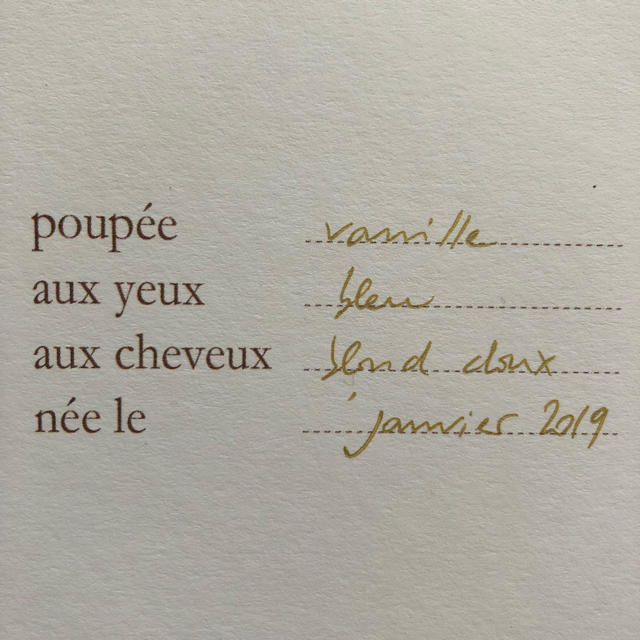 poupée vanille
aux yeux bleu
aux cheveux blond doux
née le janvier 2019